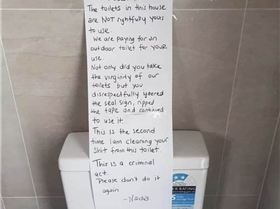 The toilets in this house
are NOT rightfully yours
to use.
We are paying for an
outdoor toilet for your
use.
Not only did you take
the virginity of our
toilets but you
disrespectfully ignored
the seal sign, ripped
the tape and continued
to use it.
This is the second
time I am clearing your
shit from this toilet.
This is a criminal
act.
Please don't do it
again